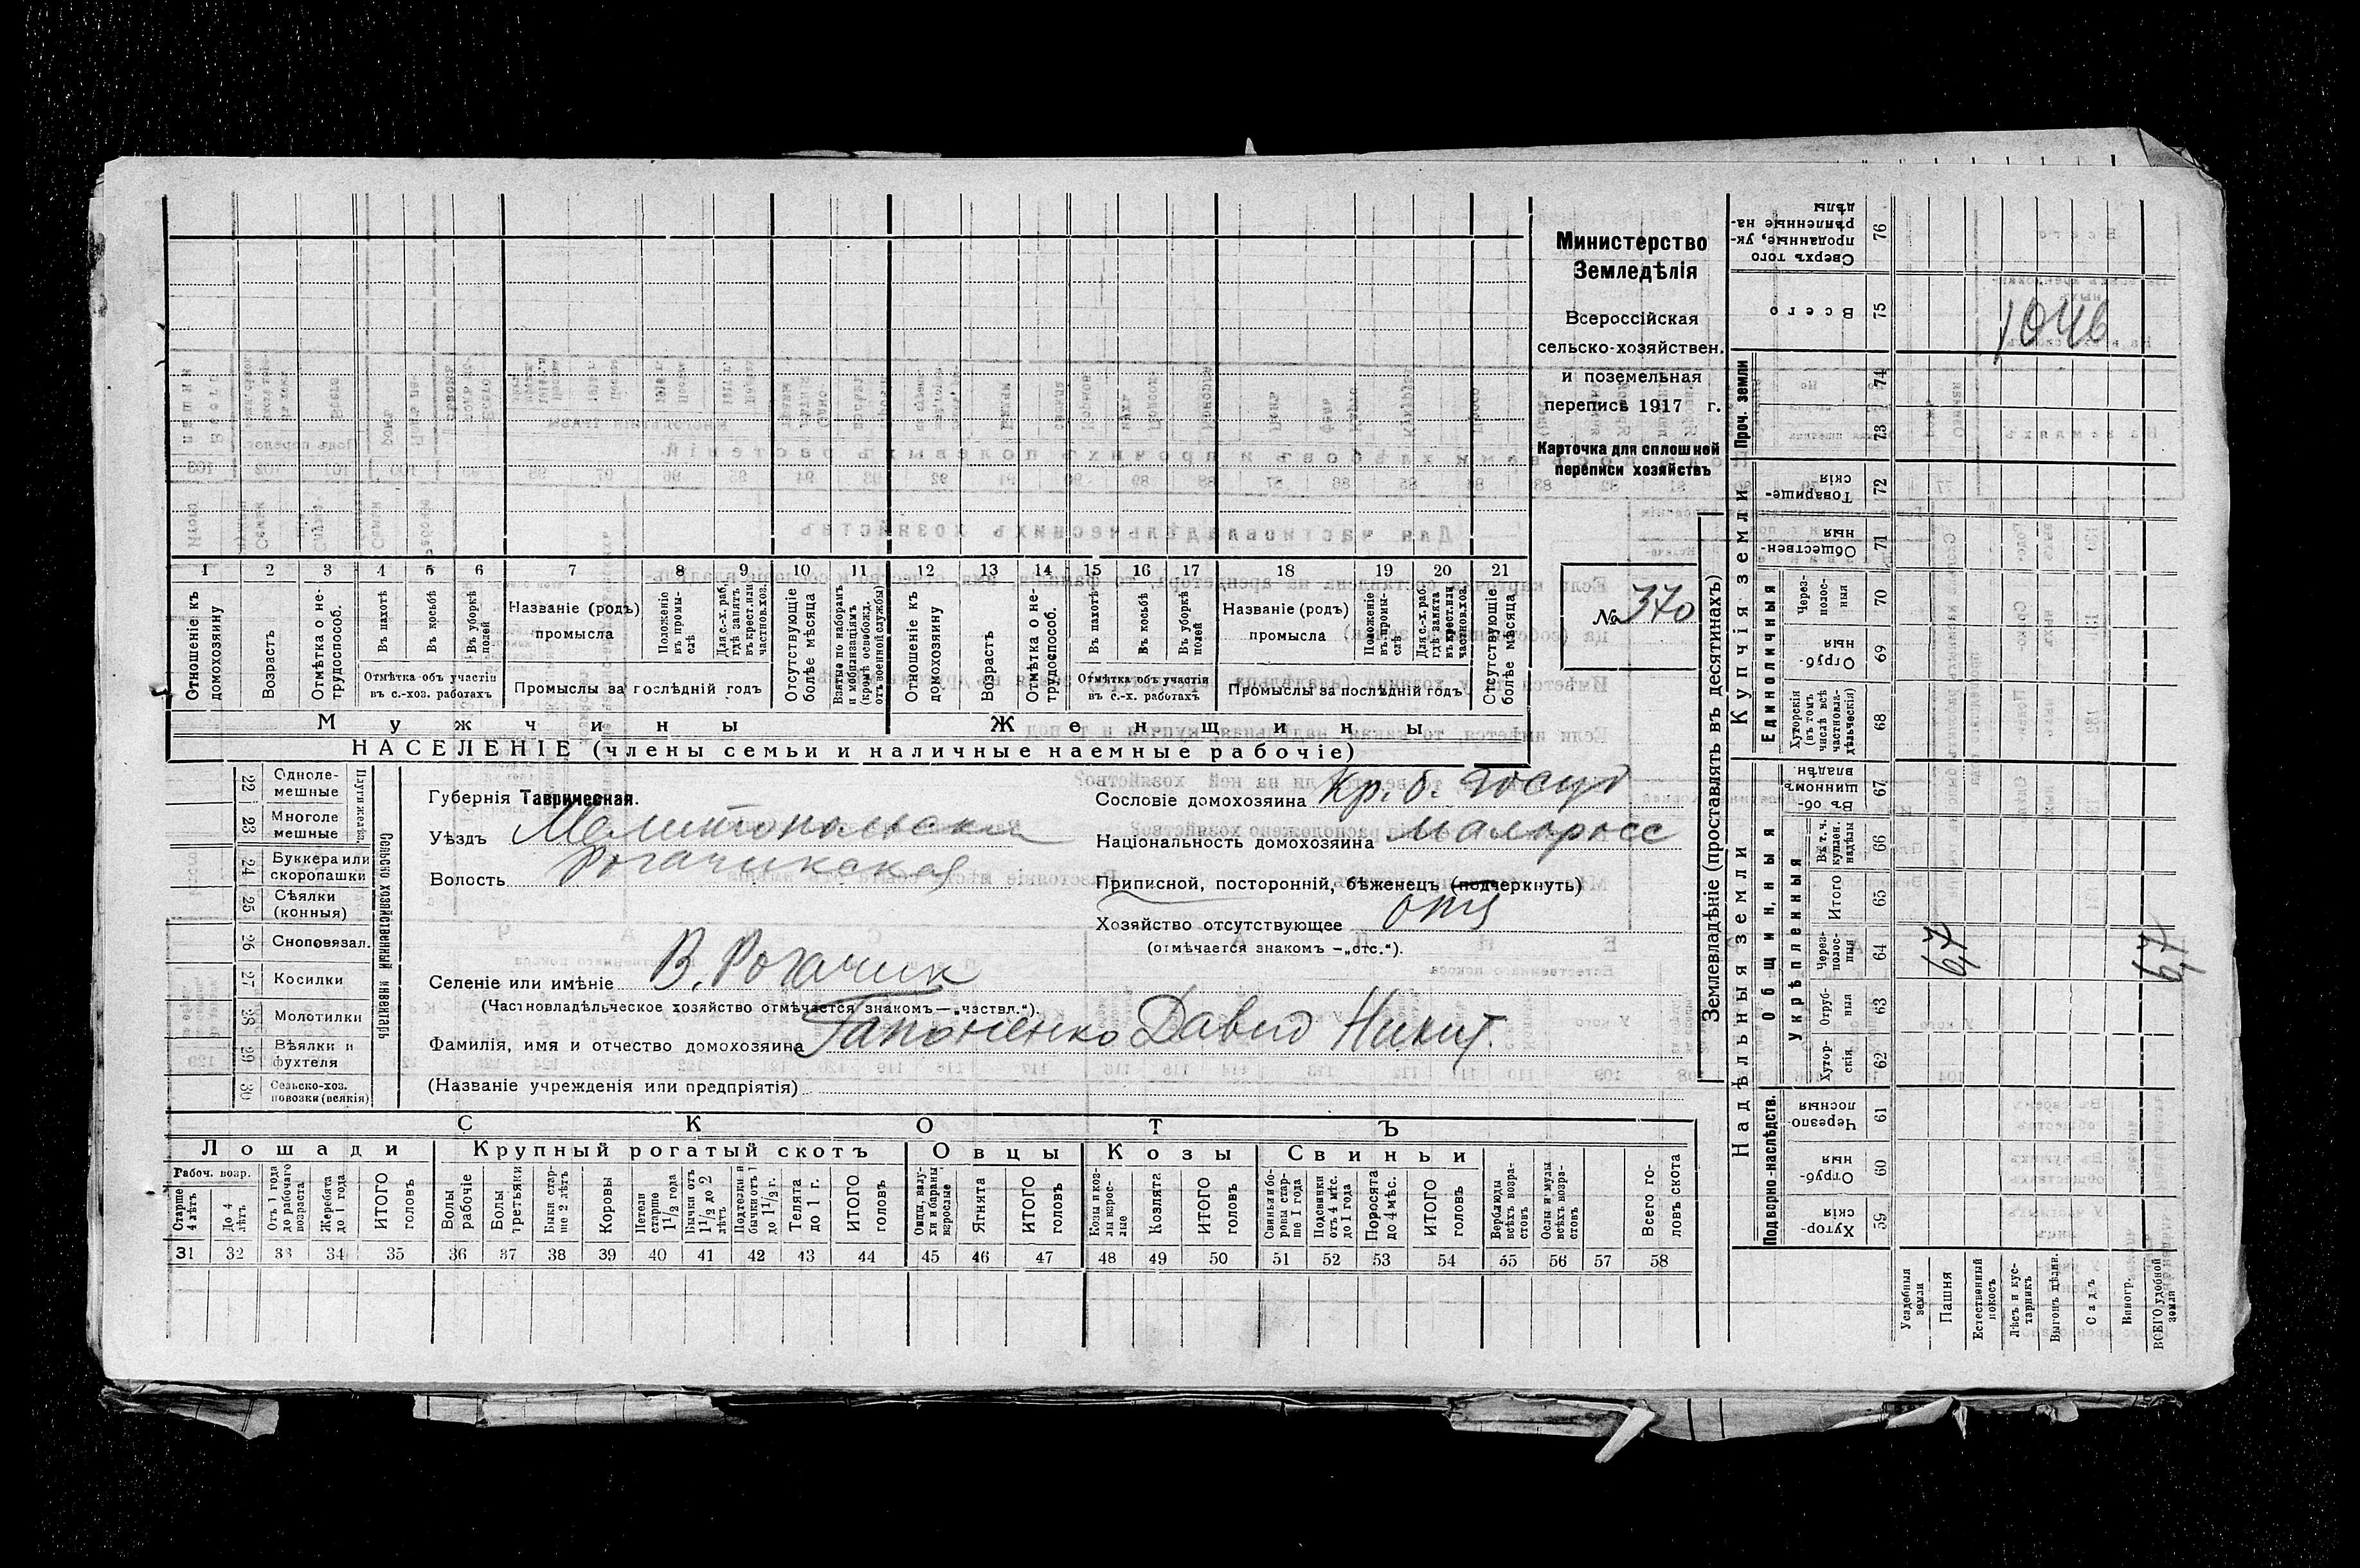 Министерство
Земледѣлія
Всероссійская
сельско-хозяйствен.
и поземельная
перепись 1917 г.
Карточка для сплошной
переписи хозяйствъ
№ 370
1 2 3 4 5 6 7 8 9 10 11 12 13 14 15 16 17 18 19 20 21
Отношеніе къ домохозяину
Возрастъ
Отмѣтка о нетрудоспособ.
Въ пахотѣ
Въ косьбѣ
Въ уборкѣ полей
Отмѣтка объ участіи въ с.-хоз. работахъ
Названіе (родъ) промысла
Положеніе въ промыслѣ
Для с.-х. раб. гдѣ занятъ въ крест. или частнов. хоз.
Промыслы за послѣдній годъ
Отсутствующіе болѣе мѣсяца
Взятые по наборамъ и мобилизаціямъ (кромѣ освобожд. отъ военной службы)
Отношеніе къ домохозяину
Возрастъ
Отмѣтка о нетрудоспособ.
Въ пахотѣ
Въ косьбѣ
Въ уборкѣ полей
Отмѣтка объ участіи въ с.-х. работахъ
Названіе (родъ) промысла
Положеніе въ промыслѣ
Для с.-х. раб. гдѣ занята въ крест. или частнов. хоз.
Промыслы за послѣдній годъ
Отсутствующіе болѣе мѣсяца
Мужчины Женщины
НАСЕЛЕНІЕ (члены семьи и наличные наемные рабочіе)
Сельско хозяйственный инвентарь
Плуги желѣз.
22 Однолемешные
23 Многолемешные
24 Буккера или скоропашки
25 Сѣялки (конныя)
26 Сноповязал.
27 Косилки
28 Молотилки
29 Вѣялки и фухтеля
30 Сельско-хоз. повозки (всякія)
Губернія Таврическая.
Уѣздъ Мелитопольскій
Волость Рогачикская
Сословіе домохозяина Кр. б. госуд
Національность домохозяина малоросс
Приписной, посторонній, бѣженецъ (подчеркнуть)
Хозяйство отсутствующее отс
(отмѣчается знакомъ —„отс.“).
Селеніе или имѣніе В. Рогачик
(Частновладѣльческое хозяйство отмѣчается знакомъ—„частвл.“).
Фамилія, имя и отчество домохозяина Гапоненко Давид Никит.
(Названіе учрежденія или предпріятія)
СКОТЪ
Лошади Крупный рогатый скотъ Овцы Козы Свиньи
Рабоч. возр.
Старше 4 лѣтъ
До 4 лѣтъ
Отъ 1 года до рабочаго возраста
Жеребята до 1 года
ИТОГО головъ
Волы рабочіе
Волы третьяки
Быки старше 2 лѣтъ
Коровы
Нетели старше 1 1/2 года
Бычки отъ 1 1/2 до 2 лѣтъ
Подтелки и бычки отъ 1 до 1 1/2 г.
Телята до 1 г.
ИТОГО головъ
Овцы, валухи и бараны взрослые
Ягнята
ИТОГО головъ
Козы и козлы взрослые
Козлята
ИТОГО головъ
Свиньи и боровы старше 1 года
Подсвинки отъ 4 мѣс. до 1 года
Поросята до 4 мѣс.
ИТОГО головъ
Верблюды всѣхъ возрастовъ
Ослы и мулы всѣхъ возрастовъ
Всего головъ скота
31 32 33 34 35 36 37 38 39 40 41 42 43 44 45 46 47 48 49 50 51 52 53 54 55 56 57 58
Землевладѣніе (проставлять въ десятинахъ)
Надѣльныя земли
Купчія земли
Проч. земли
Подворно-наслѣдств.
Общинныя
Укрѣпленныя
Единоличныя
76 Сверхъ того проданные, укрѣпленные надѣлы
75 Всего
74
73
72 Товарищескія
71 Общественныя
70 Черезполосныя
69 Отрубныя
68 Хуторскія (въ томъ числѣ всѣ частновладѣльческія)
67 Въ общинномъ владѣн.
66 Въ т. ч. куплен. надѣлы
65 Итого
64 Черезполосныя
63 Отрубныя
62 Хуторскія
61 Черезполосныя
60 Отрубныя
59 Хуторскія
1046
6,7 6,7
Усадебныя земли
Пашня
Естественный покосъ
Лѣсъ и кустарникъ
Выгонъ дѣлин.
Садъ
Виногр.
ВСЕГО удобной земли